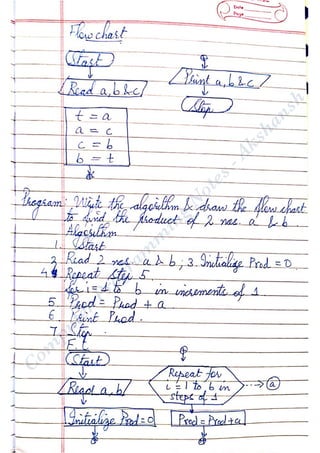 Flow chart
Start
Read a, b & c
t = a
a = c
c = b
b = t
Print a, b & c
Stop
Program: Write the algorithm & draw the flow chart
to find the product of 2 nos. a & b.
Algorithm
1. Start
2. Read 2 nos. a & b; 3. Initialize Prod = 0.
4. Repeat Step 5
for i = 1 to b in increments of 1
5. Prod = Prod + a
6. Print Prod.
7. Stop.
F.C
Start
Read a, b
Initialize Prod = 0
Repeat for
i = 1 to b in
steps of 1
a
Prod = Prod + a
Date
Page
Notes - Akshansh